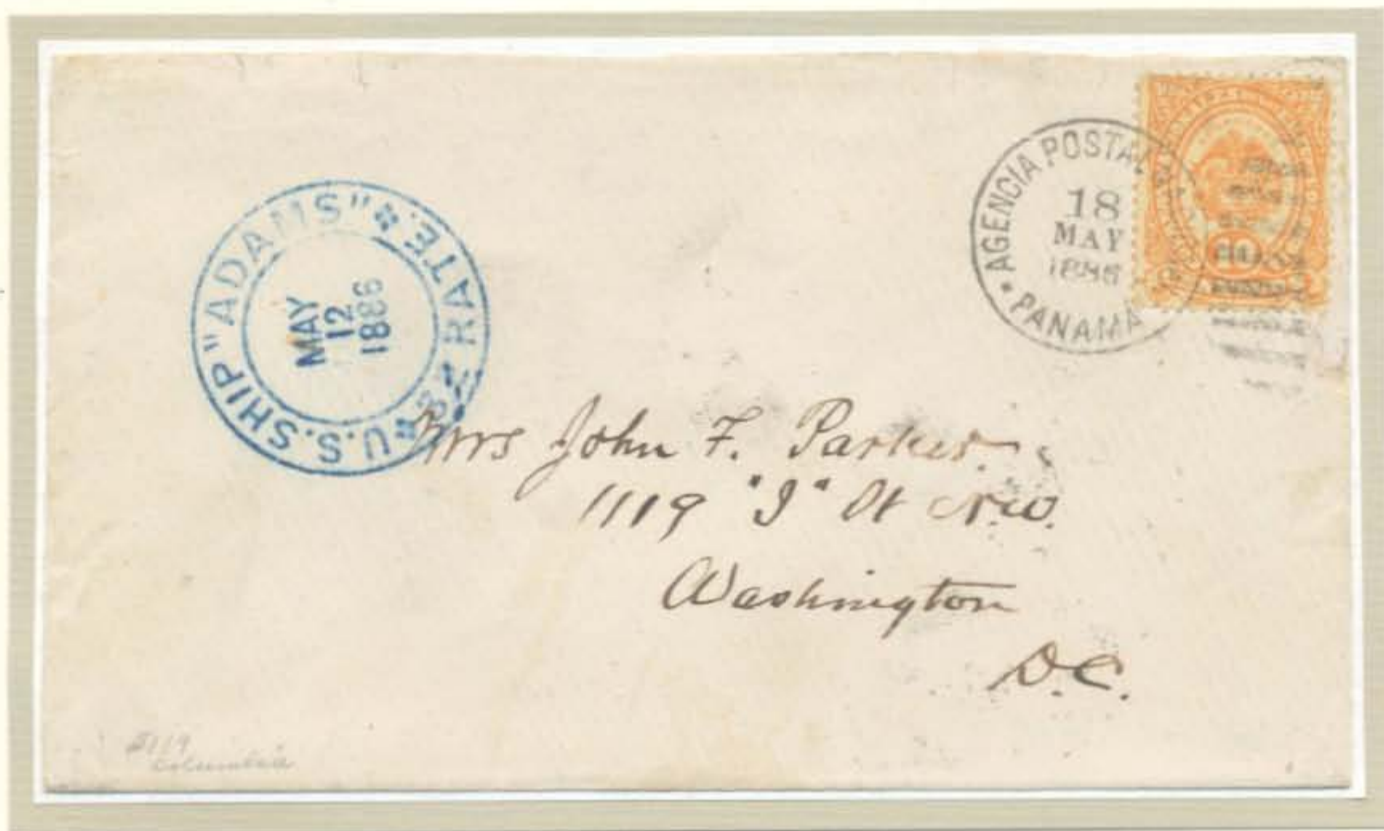 U.S. SHIP "ADAMS" 3RD RATE
MAY
12
1886
AGENCIA POSTAL
18
MAY
1886
PANAMA
10
Mrs John F. Parker.
1119 "I" St N.W.
Washington
D.C.
Columbia